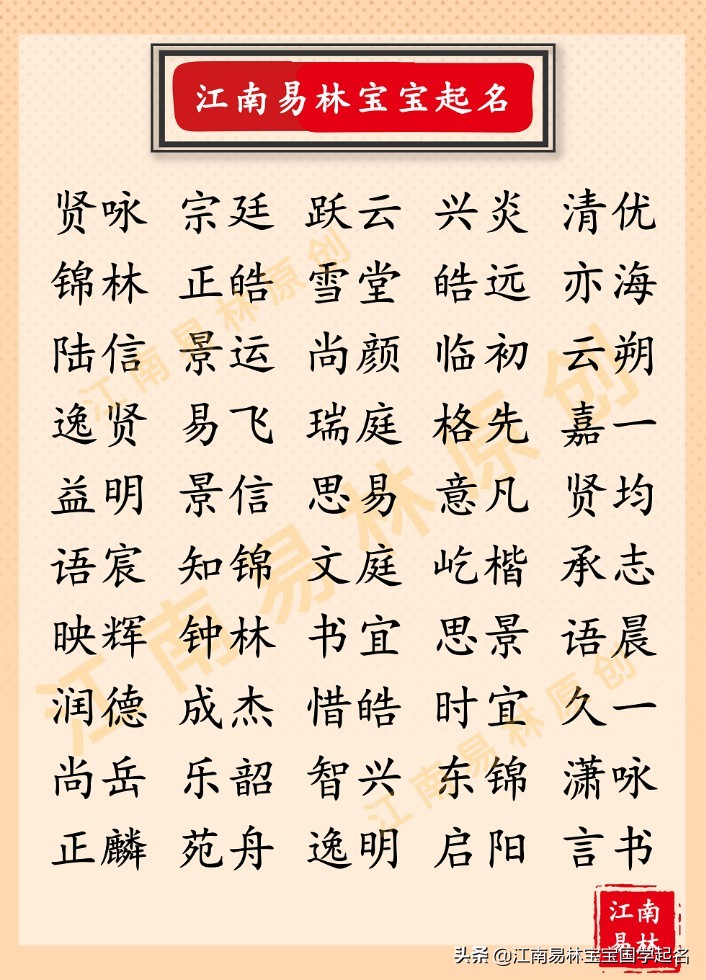 江南易林宝宝起名
贤咏 宗廷 跃云 兴炎 清优
锦林 正皓 雪堂 皓远 亦海
陆信 景运 尚颜 临初 云朔
逸贤 易飞 瑞庭 格先 嘉一
益明 景信 思易 意凡 贤均
语宸 知锦 文庭 屹楷 承志
映辉 钟林 书宜 思景 语晨
润德 成杰 惜皓 时宜 久一
尚岳 乐韶 智兴 东锦 潇咏
正麟 苑舟 逸明 启阳 言书
江南易林原创
江南易林原创
江南易林原创
江南
易林
头条 @江南易林宝宝国学起名